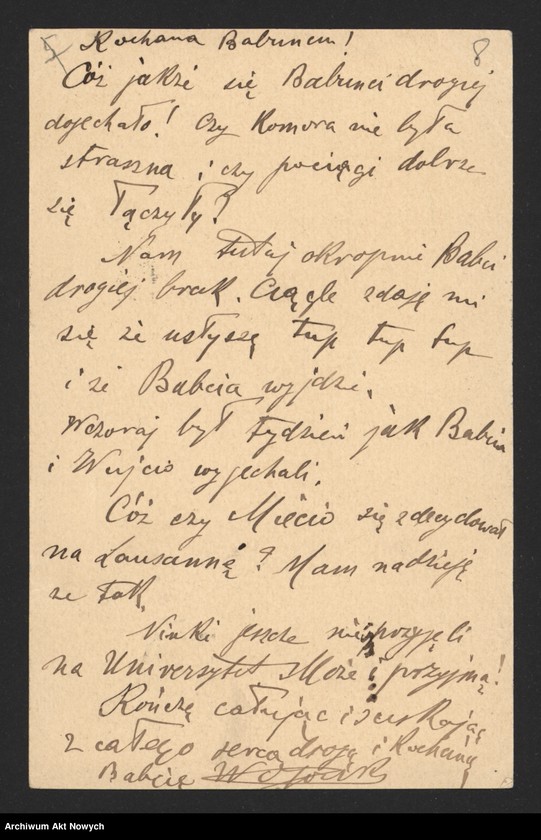 5 Kochana Babuniu! 8
Cóż jakże się Babunci drogiej
dojechało! czy Komora nie była
straszna i czy pociągi dobrze
się łączyły?
Nam tutaj okropnie Babci
drogiej brak. Ciągle zdaję mi
się że usłyszę tup tup tup
i że Babcia wyjdzie.
Wczoraj był tydzień jak Babcia
i Wujcio wyjechali.
Cóż czy Miecio się zdecydował
na Lausannę? Mam nadzieję
że tak.
Ninki jeszcze nie przyjęli
na Uniwersytet. Może i przyjmą!
Kończę całując i ściskając
z całego serca drogą i Kochaną
Babcię
Archiwum Akt Nowych